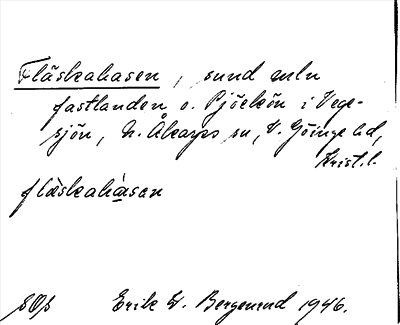 Fläskahasen, sund mln
fastlanden o. Pjöekön i Vege-
sjön, N. Åkarps sn, V. Göinge hd,
Krist. l.
flæskahàsan
SOs Erik W. Bergsund 1946.